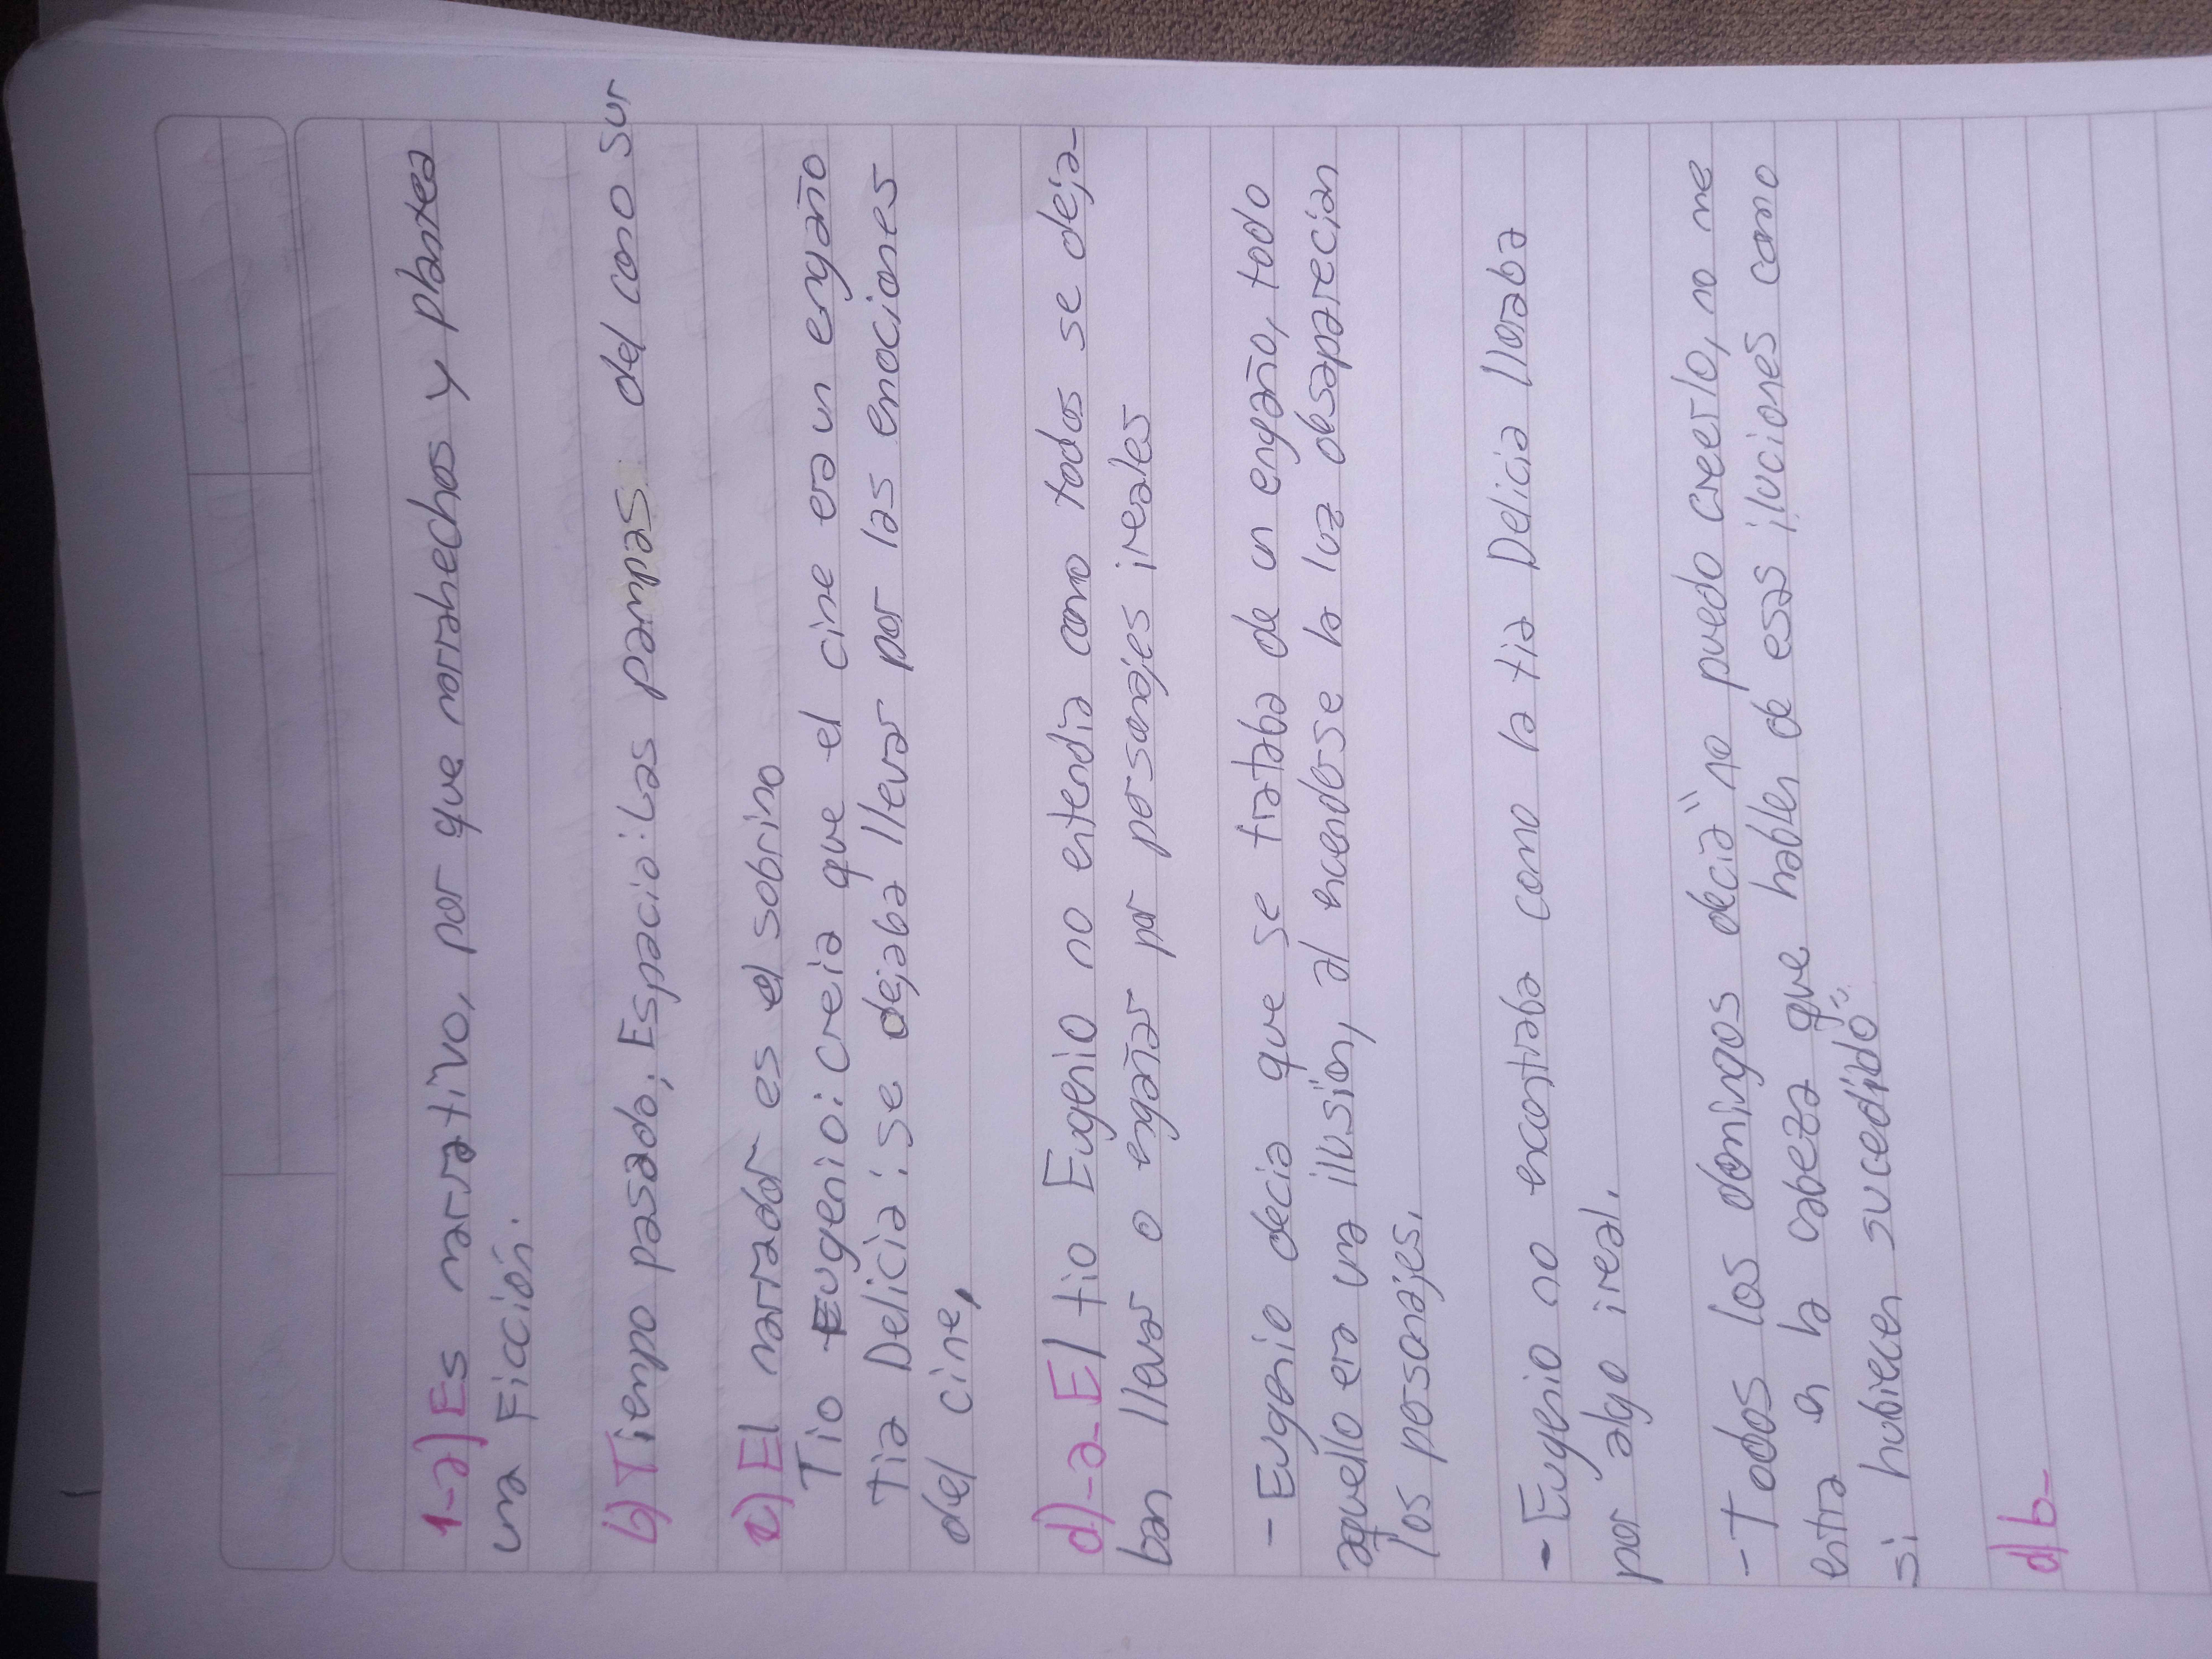 1-a) Es narrativo, por que narra hechos y plantea
una Ficción.
b) Tiempo pasado, Espacio: Las pampas del cono sur
c) El narrador es el sobrino
Tio Eugenio: Creia que el cine era un engaño
Tia Delicia: se dejaba llevar por las emociones
del cine,
d)-a- El tio Eugenio no entendia como todos se deja-
ban llevar o engañar por personajes ireales
- Eugenio decia que se trataba de un engaño, todo
aquello era una illusión, al encenderse la luz desaparecian
los personajes.
- Eugenio no encontraba como la tia Delicia lloraba
por algo ireal.
- Todos los domingos decia "no puedo creerlo, no me
entra en la cabeza que hablen de esas iluciones como
si hubiecen sucedido"
d) b-